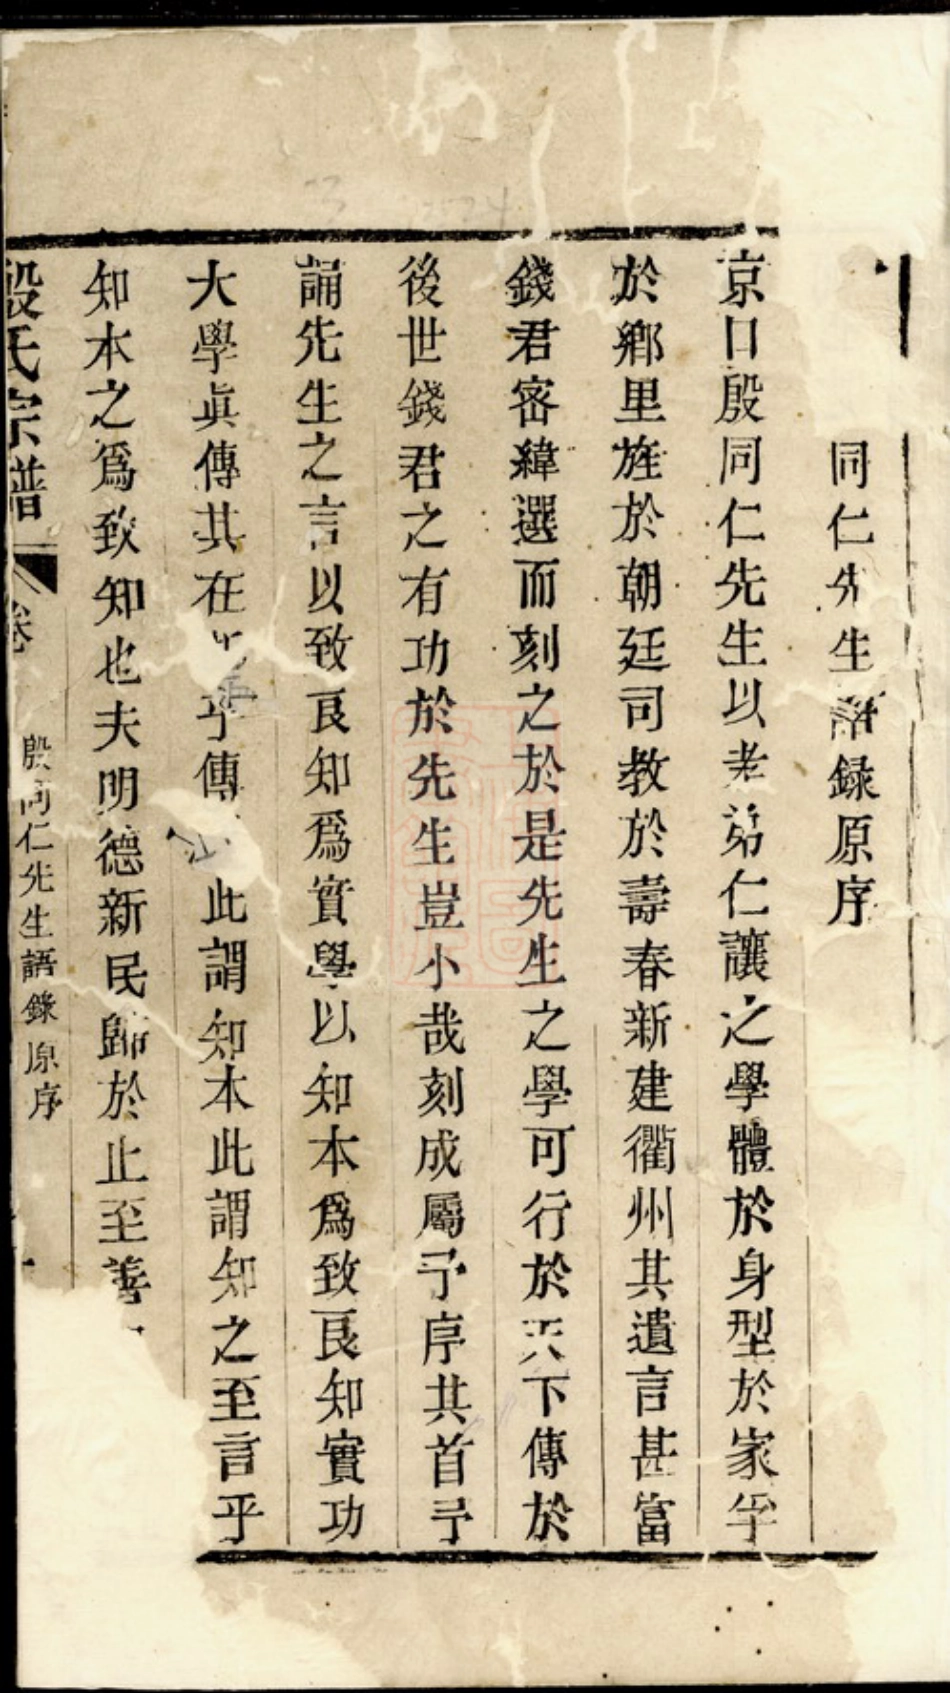 同仁先生語録原序
京口殷同仁先生以孝弟仁讓之學體於身型於家孚
於鄉里旌於朝廷司教於壽春新建衢州其遺言甚富
錢君宻緯選而刻之於是先生之學可行於天下傳於
後世錢君之有功於先生豈小哉刻成屬予序其首予
誦先生之言以致良知爲實學以知本爲致良知實功
大學眞傳其在乎傳此謂知本此謂知之至言乎
知本之爲致知也夫明德新民歸於止至善
殷氏宗譜 卷 殷同仁先生語錄原序 一